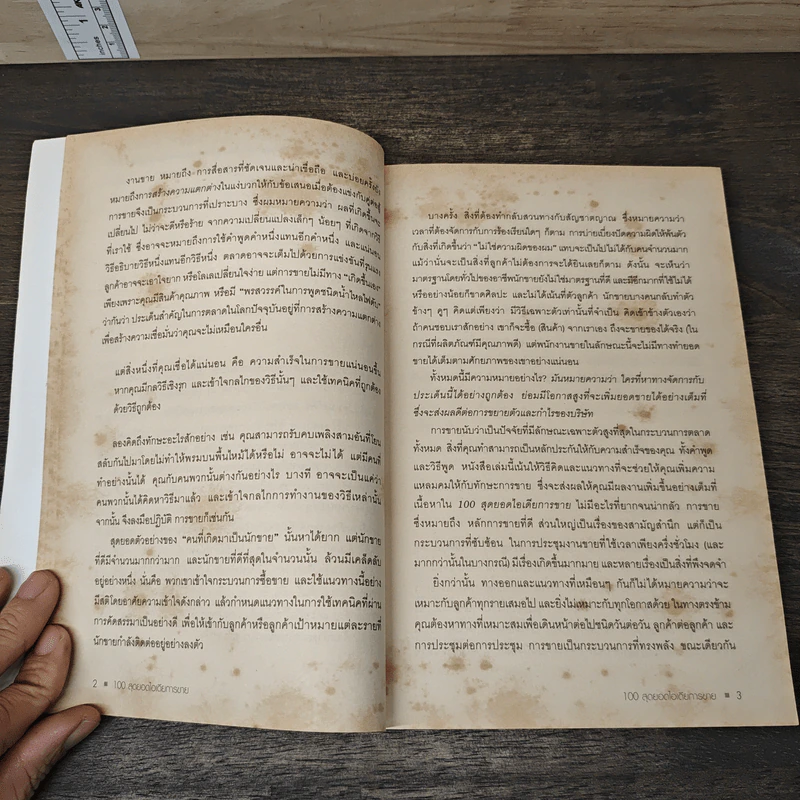 งานขาย หมายถึง การสื่อสารที่ชัดเจนและน่าเชื่อถือ และบ่อยครั้งยัง
หมายถึงการสร้างความแตกต่างในแง่บวกให้กับข้อเสนอเมื่อต้องแข่งกับคู่แข่ง
การขายจึงเป็นกระบวนการที่เปราะบาง ซึ่งผมหมายความว่า ผลที่เกิดขึ้นจะ
เปลี่ยนไป ไม่ว่าจะดีหรือร้าย จากความเปลี่ยนแปลงเล็กๆ น้อยๆ ที่เกิดจากวิธี
ที่เราใช้ ซึ่งอาจจะหมายถึงการใช้คำพูดคำหนึ่งแทนอีกคำหนึ่ง และแน่นอน
วิธีอธิบายวิธีหนึ่งแทนอีกวิธีหนึ่ง ตลาดอาจจะเต็มไปด้วยการแข่งขันที่รุนแรง
ลูกค้าอาจจะเอาใจยาก หรือโลเลเปลี่ยนใจง่าย แต่การขายไม่มีทาง "เกิดขึ้นเอง"
เพียงเพราะคุณมีสินค้าคุณภาพ หรือมี "พรสวรรค์ในการพูดชนิดน้ำไหลไฟดับ"
ว่ากันว่า ประเด็นสำคัญในการตลาดในโลกปัจจุบันอยู่ที่การสร้างความแตกต่าง
เพื่อสร้างความเชื่อมั่นว่าคุณจะไม่เหมือนใครอื่น
แต่สิ่งหนึ่งที่คุณเชื่อได้แน่นอน คือ ความสำเร็จในการขายแน่นอนขึ้น
หากคุณมีกลวิธีเชิงรุก และเข้าใจกลไกของวิธีนั้นๆ และใช้เทคนิคที่ถูกต้อง
ด้วยวิธีถูกต้อง
ลองคิดถึงทักษะอะไรสักอย่าง เช่น คุณสามารถรับคบเพลิงสามอันที่โยน
สลับกันไปมาโดยไม่ทำให้พรมบนพื้นไหม้ได้หรือไม่ อาจจะได้ แต่มีคนที่
ทำอย่างนั้นได้ คุณกับคนพวกนั้นต่างกันอย่างไร บางที อาจจะเป็นแค่ว่า
คนพวกนั้นได้คิดหาวิธีมาแล้ว และเข้าใจกลไกการทำงานของวิธีเหล่านั้น
จากนั้น จึงลงมือปฏิบัติ การขายก็เช่นกัน
สุดยอดตัวอย่างของ "คนที่เกิดมาเป็นนักขาย" นั้นหาได้ยาก แต่นักขาย
ที่ดีมีจำนวนมากกว่ามาก และนักขายที่ดีที่สุดในจำนวนนั้น ล้วนมีเคล็ดลับ
อยู่อย่างหนึ่ง นั่นคือ พวกเขาเข้าใจกระบวนการซื้อขาย และใช้แนวทางนี้อย่าง
มีสติโดยอาศัยความเข้าใจดังกล่าว แล้วกำหนดแนวทางในการใช้เทคนิคที่ผ่าน
การคัดสรรมาเป็นอย่างดี เพื่อให้เข้ากับลูกค้าหรือลูกค้าเป้าหมายแต่ละรายที่
นักขายกำลังติดต่ออยู่อย่างลงตัว
2 ■ 100 สุดยอดไอเดียการขาย
บางครั้ง สิ่งที่ต้องทำกลับสวนทางกับสัญชาตญาณ ซึ่งหมายความว่า
เวลาที่ต้องจัดการกับการร้องเรียนใดๆ ก็ตาม การบ่ายเบี่ยงปัดความผิดให้พ้นตัว
กับสิ่งที่เกิดขึ้นว่า "ไม่ใช่ความผิดของผม" แทบจะเป็นไปไม่ได้กับคนจำนวนมาก
แม้ว่านั่นจะเป็นสิ่งที่ลูกค้าไม่ต้องการจะได้ยินเลยก็ตาม ดังนั้น จะเห็นว่า
มาตรฐานโดยทั่วไปของอาชีพนักขายยังไม่ใช่มาตรฐานที่ดี และมีอีกมากที่ใช้ไม่ได้
หรืออย่างน้อยก็ขาดศิลปะ และไม่ได้เน้นที่ตัวลูกค้า นักขายบางคนกลับทำตัว
ข้างๆ คูๆ คิดแต่เพียงว่า มีวิธีเฉพาะตัวเท่านั้นที่จำเป็น คิดเข้าข้างตัวเองว่า
ถ้าคนชอบเราสักอย่าง เขาก็จะซื้อ (สินค้า) จากเราเอง ถึงจะขายของได้จริง (ใน
กรณีที่ผลิตภัณฑ์มีคุณภาพดี) แต่พนักงานขายในลักษณะนี้จะไม่มีทางทำยอด
ขายได้เต็มตามศักยภาพของเขาอย่างแน่นอน
ทั้งหมดนี้มีความหมายอย่างไร? มันหมายความว่า ใครที่หาทางจัดการกับ
ประเด็นนี้ได้อย่างถูกต้อง ย่อมมีโอกาสสูงที่จะเพิ่มยอดขายได้อย่างเต็มที่
ซึ่งจะส่งผลดีต่อการขยายตัวและกำไรของบริษัท
การขายนับว่าเป็นปัจจัยที่มีลักษณะเฉพาะตัวสูงที่สุดในกระบวนการตลาด
ทั้งหมด สิ่งที่คุณทำสามารถเป็นหลักประกันให้กับความสำเร็จของคุณ ทั้งคำพูด
และวิธีพูด หนังสือเล่มนี้เน้นให้วิธีคิดและแนวทางที่จะช่วยให้คุณเพิ่มความ
แหลมคมให้กับทักษะการขาย ซึ่งจะส่งผลให้คุณมีผลงานเพิ่มขึ้นอย่างเต็มที่
เนื้อหาใน 100 สุดยอดไอเดียการขาย ไม่มีอะไรที่ยากจนน่ากลัว การขาย
ซึ่งหมายถึง หลักการขายที่ดี ส่วนใหญ่เป็นเรื่องของสามัญสำนึก แต่ก็เป็น
กระบวนการที่ซับซ้อน ในการประชุมงานขายที่ใช้เวลาเพียงครึ่งชั่วโมง (และ
มากกว่านั้นในบางกรณี) มีเรื่องเกิดขึ้นมากมาย และหลายเรื่องเป็นสิ่งที่พึงจดจำ
ยิ่งกว่านั้น ทางออกและแนวทางที่เหมือนๆ กันก็ไม่ได้หมายความว่าจะ
เหมาะกับลูกค้าทุกรายเสมอไป และยิ่งไม่เหมาะกับทุกโอกาสด้วย ในทางตรงข้าม
คุณต้องหาทางที่เหมาะสมเพื่อเดินหน้าต่อไปชนิดวันต่อวัน ลูกค้าต่อลูกค้า และ
การประชุมต่อการประชุม การขายเป็นกระบวนการที่ทรงพลัง ขณะเดียวกัน
100 สุดยอดไอเดียการขาย ■ 3
inches
1
2
3